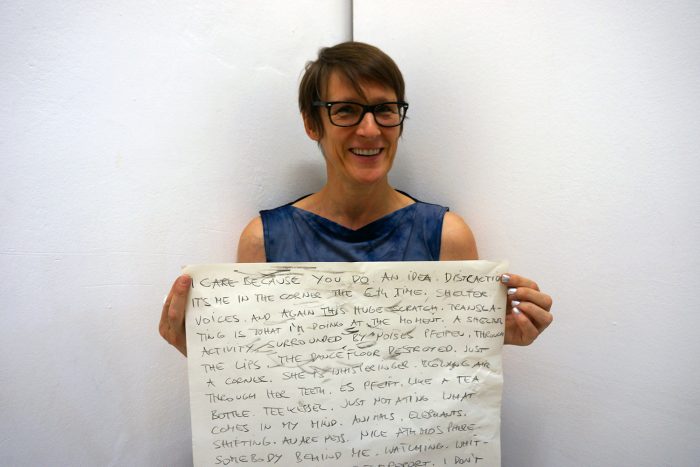 I CARE BECAUSE YOU DO. AN IDEA. DISTRACTION
IT'S ME IN THE CORNER THE 6TH TIME, SHELTER.
VOICES. AND AGAIN THIS HUGE SCRATCH. TRANSLA-
TING IS WHAT I'M DOING AT THE MOMENT. A SHELTER
ACTIVITY. SURROUNDED BY NOISES PFEIFEN, THROUGH
THE LIPS. THE DANCEFLOOR DESTROYED. JUST
A CORNER. SHE IS WHISTERINGER. BLOWING AIR
THROUGH HER TEETH. ES PFEIFT. LIKE A TEA
BOTTLE. TEEKESSEL. JUST NOTATING. WHAT
COMES IN MY MIND. ANIMALS. ELEPHANTS.
SHIFTING. NICE ATHMOSPHERE.
SOMEBODY BEHIND ME. WATCHING. WHIT-
I DON'T